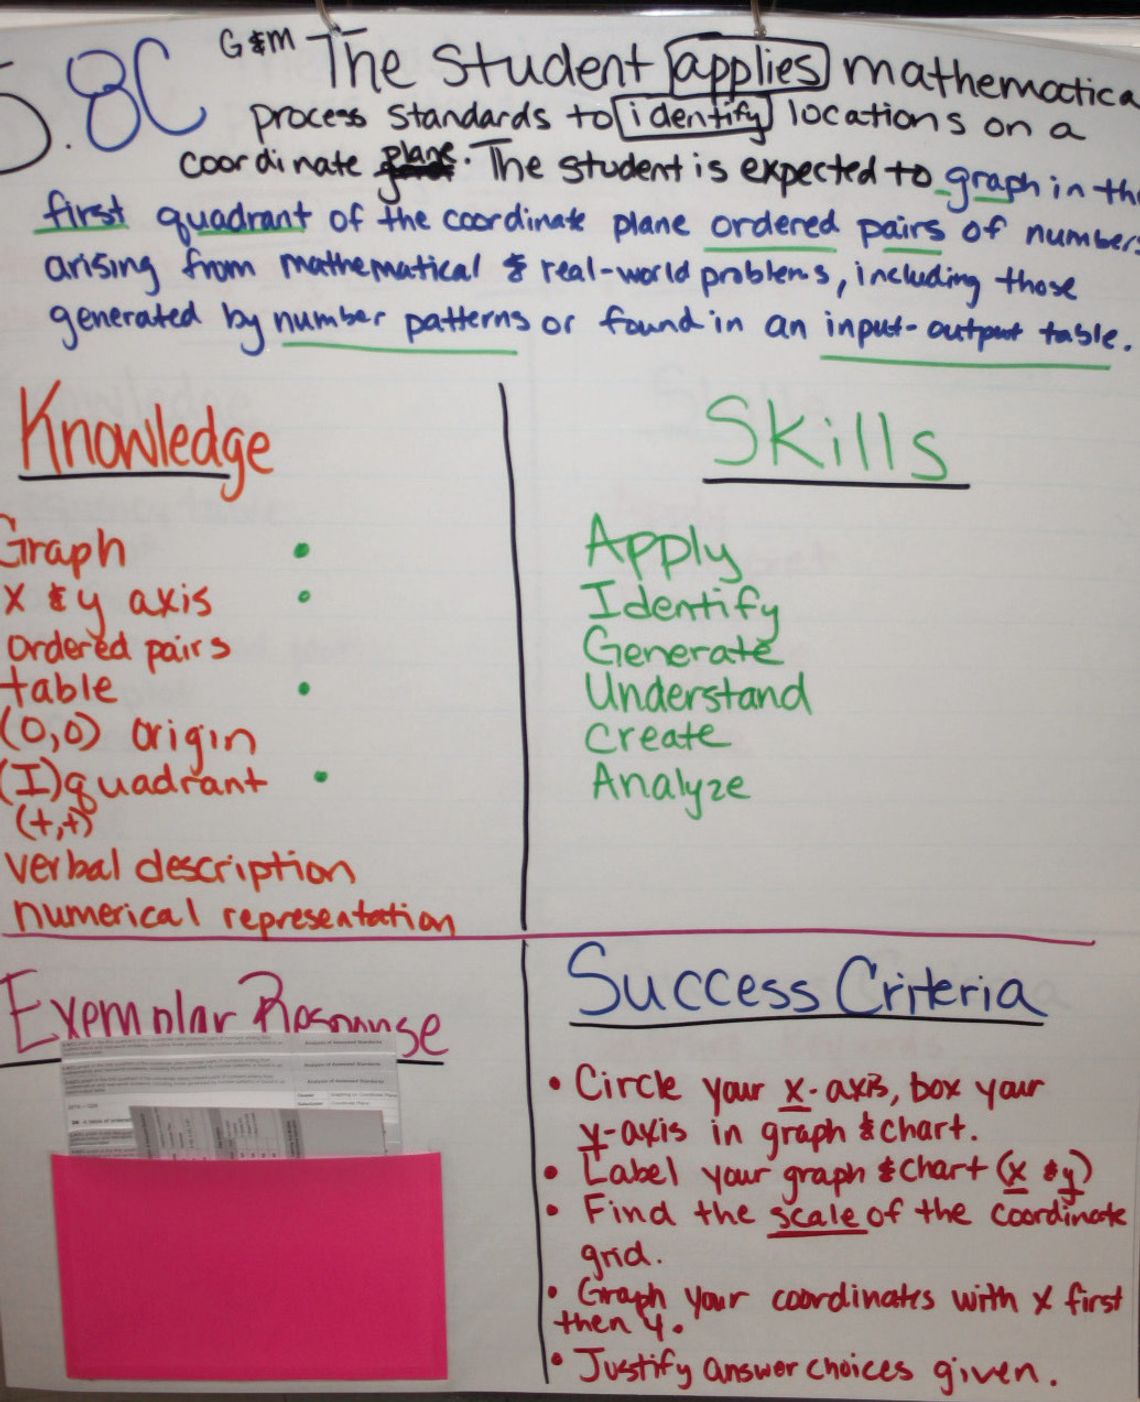 5.8C G&M The student applies mathematica
process standards to identify locations on a
coordinate plane. The student is expected to graph in the
first quadrant of the coordinate plane ordered pairs of numbers
arising from mathematical & real-world problems, including those
generated by number patterns or found in an input-output table.
Knowledge
Graph
x & y axis
ordered pairs
table
(0,0) origin
(I) quadrant
(+,+)
verbal description
numerical representation
Skills
Apply
Identify
Generate
Understand
Create
Analyze
Exemplar Response
Analysis of Assessed Standards
Analysis of Assessed Standards
Analysis of Assessed Standards
Success Criteria
• Circle your x-axis, box your
y-axis in graph & chart.
• Label your graph & chart (x & y)
• Find the scale of the coordinate
grid.
• Graph your coordinates with x first
then y.
• Justify answer choices given.